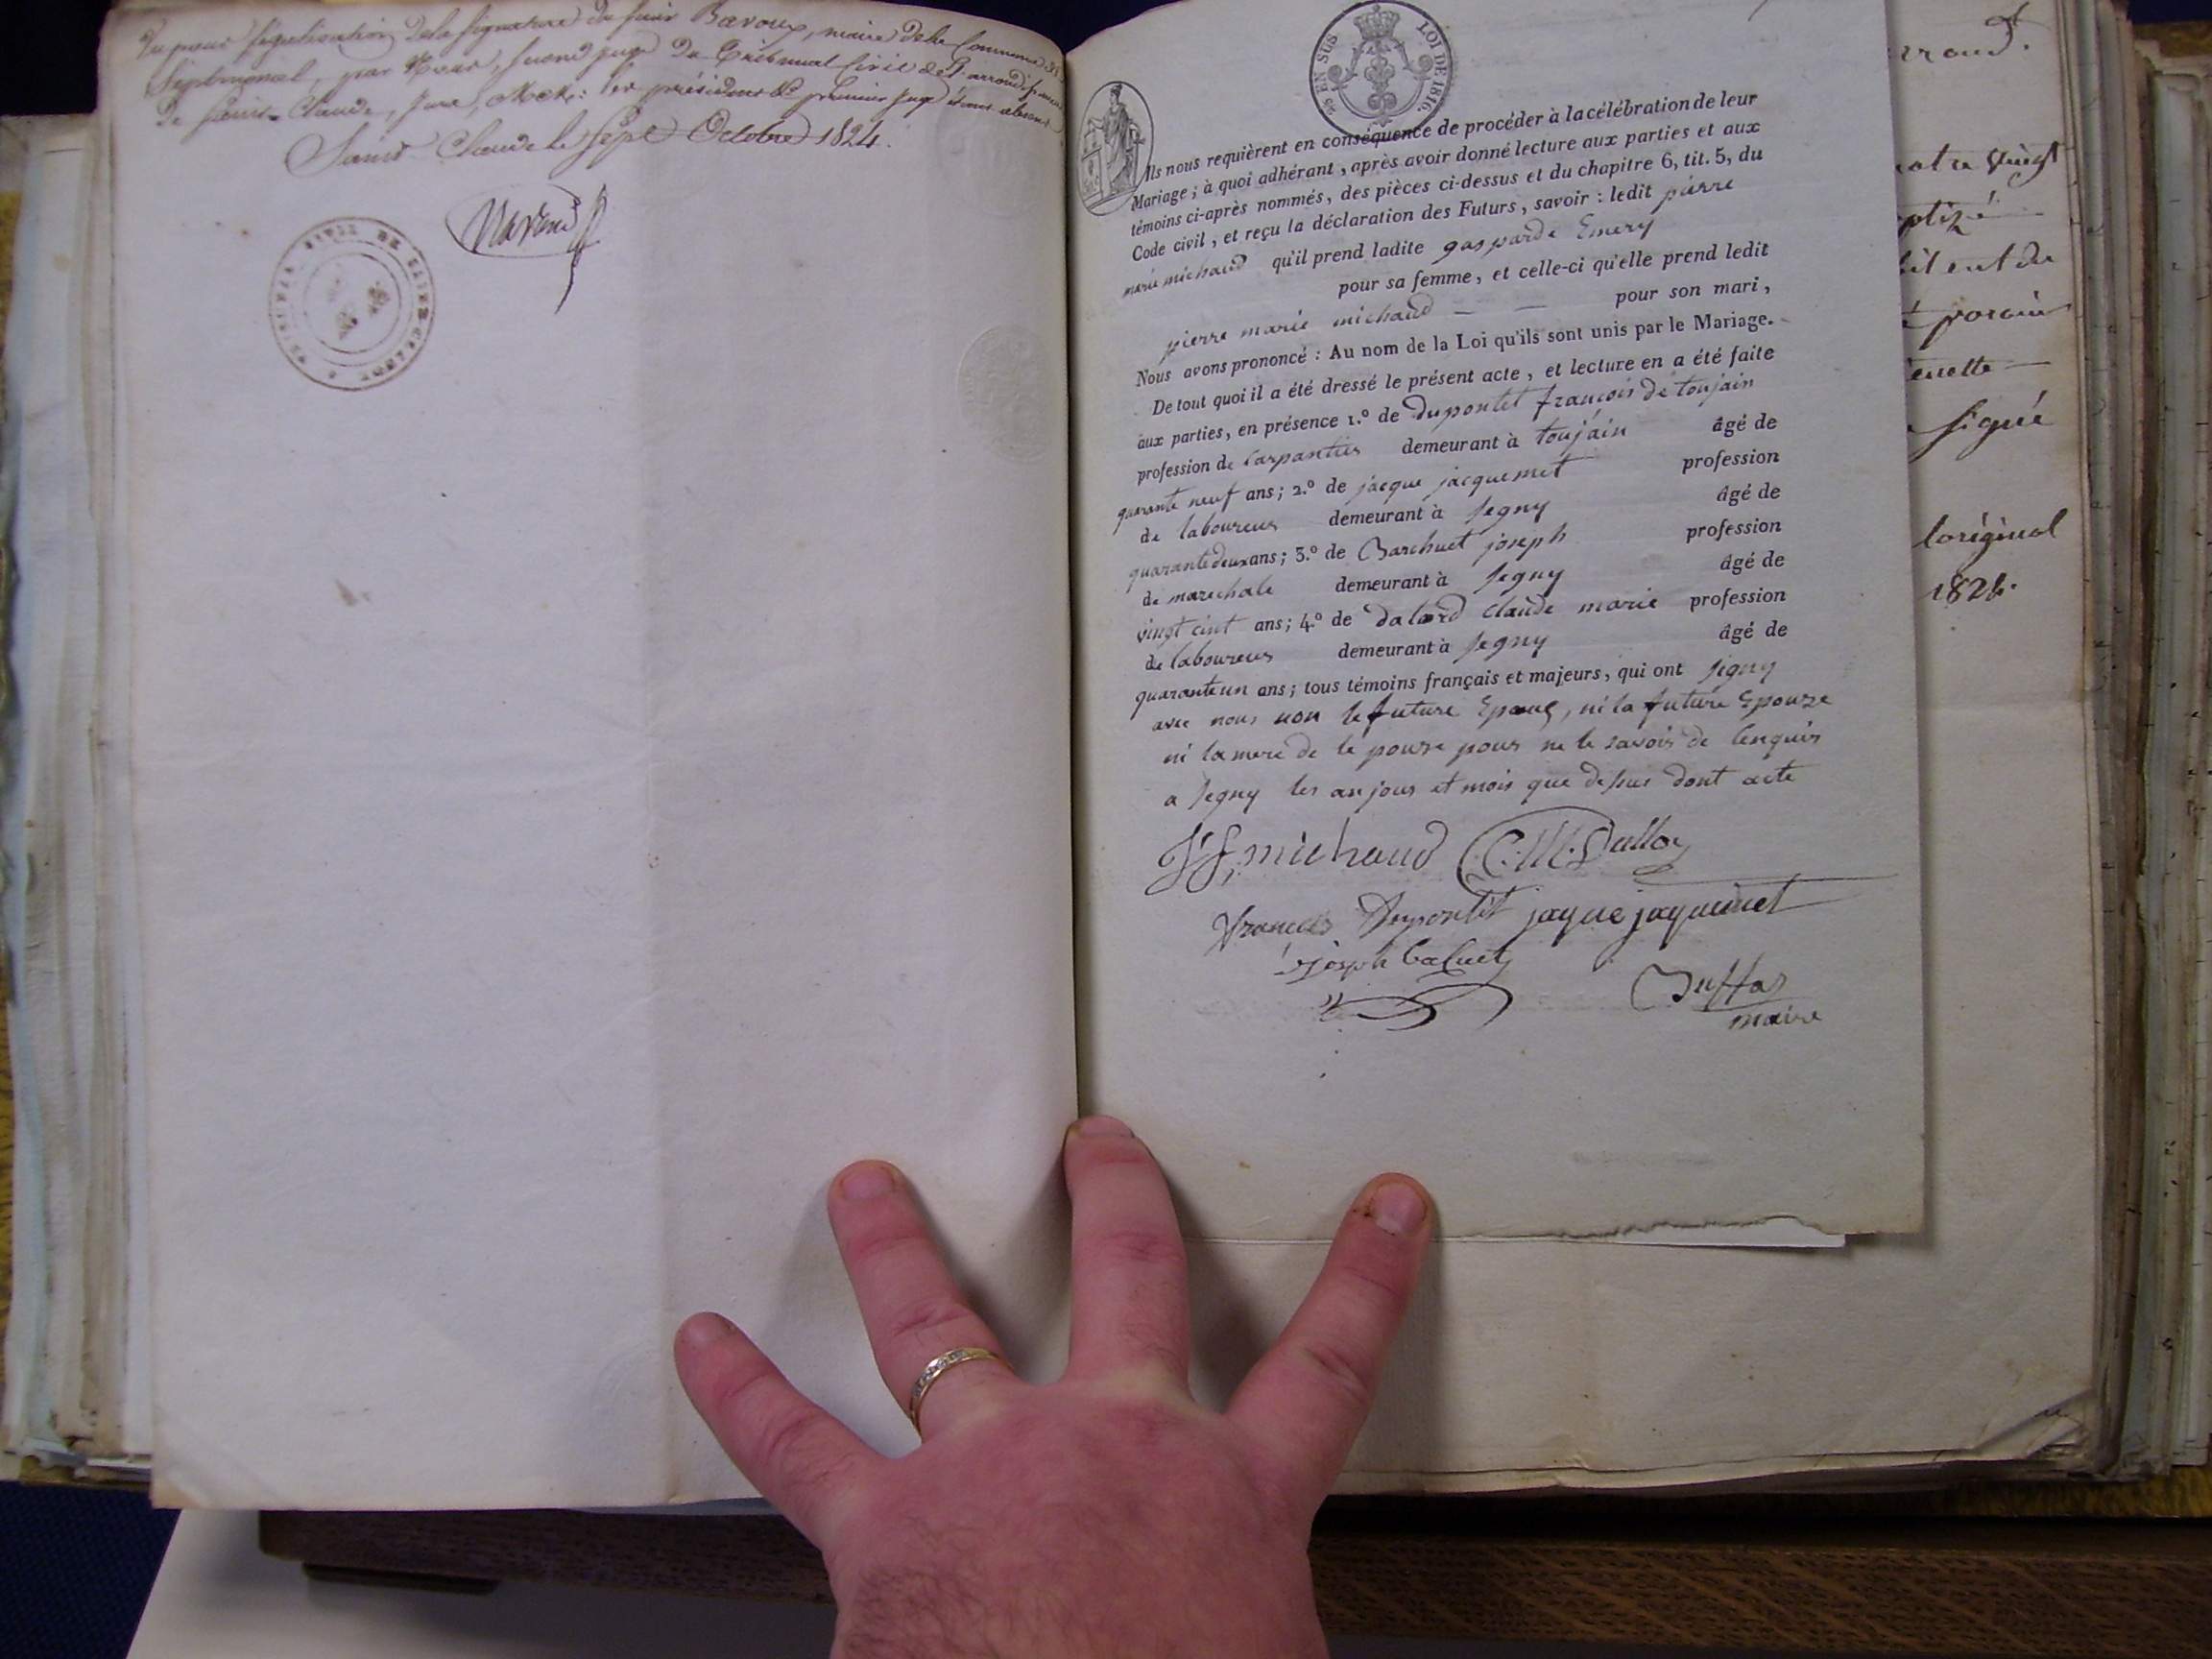 Vu pour légalisation de la signature du sieur Bavoux, maire de la Commune de
Septmoncel, par Nous, second juge du Tribunal Civil de l'arrondissement
de Saint-Claude, Jura, les président & premier juge étant absents
Saint-Claude le sept Octobre 1824.
25 EN SUS
LOI DE 1816.
Ils nous requièrent en conséquence de procéder à la célébration de leur
Mariage ; à quoi adhérant, après avoir donné lecture aux parties et aux
témoins ci-après nommés, des pièces ci-dessus et du chapitre 6, tit. 5, du
Code civil, et reçu la déclaration des Futurs, savoir : ledit pierre
marie michaud qu'il prend ladite gasparde Emery
pour sa femme, et celle-ci qu'elle prend ledit
pierre marie michaud — — pour son mari,
Nous avons prononcé : Au nom de la Loi qu'ils sont unis par le Mariage.
De tout quoi il a été dressé le présent acte, et lecture en a été faite
aux parties, en présence 1.º de dupontet francois de toujain
profession de Carpantier demeurant à toujain âgé de
quarante neuf ans ; 2.º de jacque jacquemet profession
de laboureur demeurant à Segny âgé de
quarante deux ans ; 3.º de Barchuet joseph profession
de marechale demeurant à Segny âgé de
vingt cint ans ; 4.º de dalord Claude marie profession
de laboureur demeurant à Segny âgé de
quarante un ans ; tous témoins français et majeurs, qui ont signy
avec nous non le future Epoux, ni la future Epouze
ni la mere de le pouze pour ne le savoir de lenquis
a Segny les an jour et mois que desus dont acte
michaud
francois Dupontet jaque jaquemet
joseph
maire
rraud.
quatre vingt
signé
loriginal